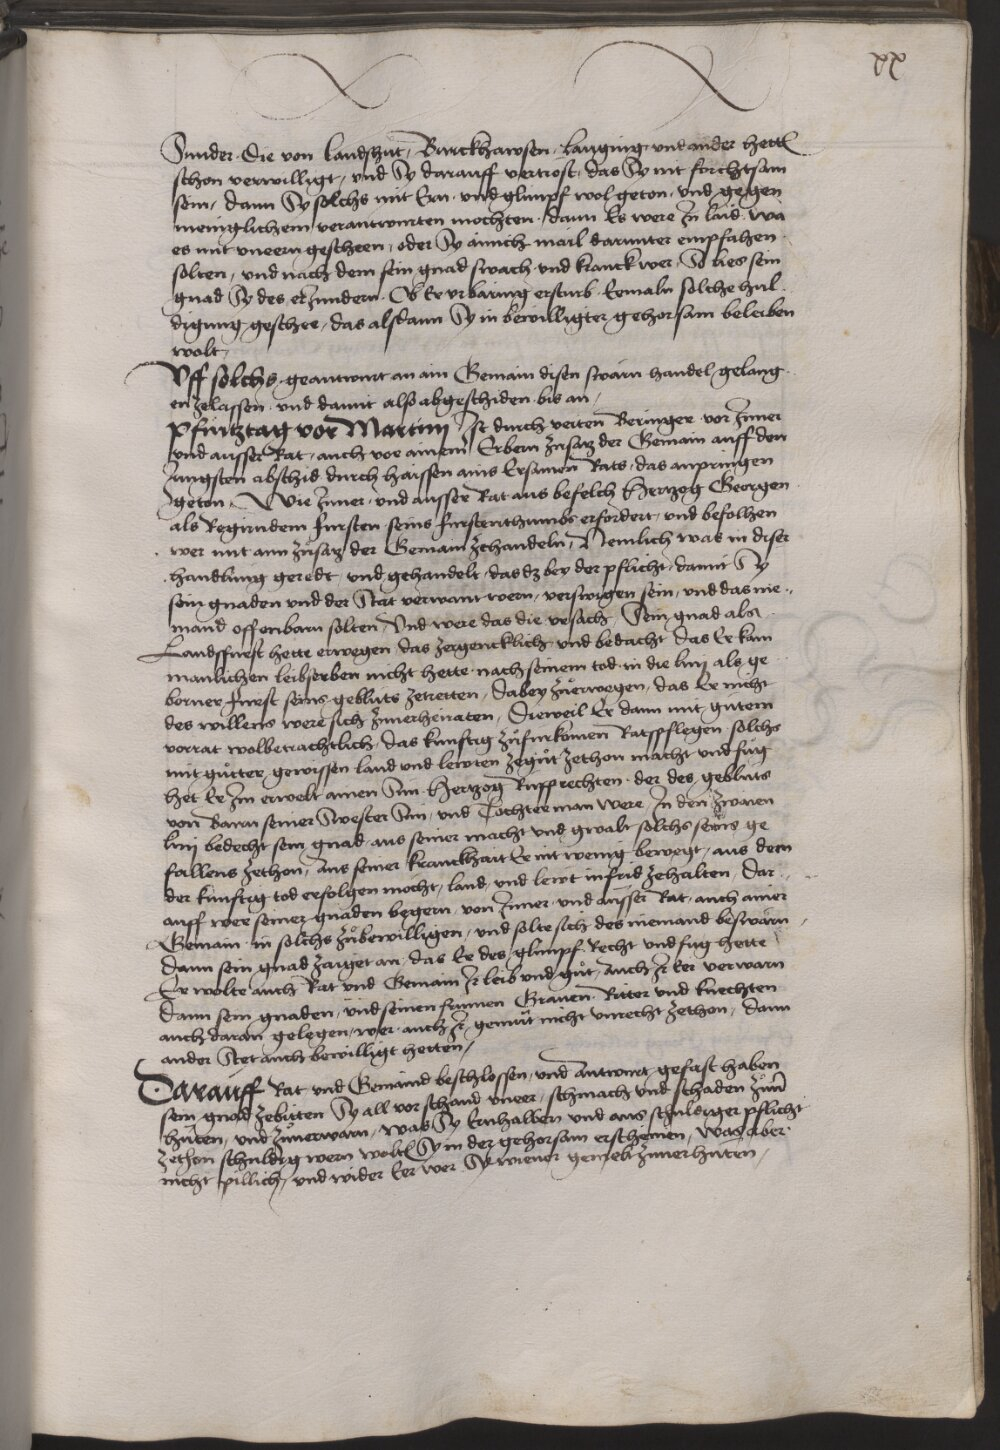 xx
Sunder. Die von Landshut, Burckhawsen, Lauging und ander hettn
schon verwilligt, und Sy darauff vertrost, das Sy nit forchtsam
sein, dann Sy solchs mit Ern und glimpf wol geton, und gegen
meniglichem verantwurten mochten, dann Es were Im laid wa
es mit uneern gescheen, oder Sy ainich mail darunter empfahen
solten, und nach dem sein gnad swach und kranck wer, So lies sein
gnad Sy des erIundern. Ob Er urbaring ersturb Eemaln solche hul
digung geschee, das alsdann Sy in bewilligter gehorsam beleiben
wolt,
Uff solchs geantwurt an ain Gemain disen swarn handel gelang
en zelassen und damit also abgeschiden bis an,
Pfintztag vor Martini Ist durch veiten Beringer vor Inner
und ausser Rat, auch vor ainem Erbern zusatz der Gemain auff den
Jungsten abschid durch haissen ains Ersamen Rats, das anpringen
geton, Wie Inner und ausser Rat aus befelch Hertzog Georgen
als Regirndem fursten seins furstenthumbs erfordert, und befolhen
wer mit ainem zusatz der Gemain zehandeln, Nemlich was in diser
handlung geredt, und gehandelt, das dz bey der pflicht, damit Sy
sein gnaden und der Stat verwant wern, verswigen sein, und das nie
mand offenbarn solten, Und were das die ursach, Sein gnad als
Landsfurst hette erwegen das zergencklich und bedacht das Er kain
manlichen leibserben nicht hette nach seinem tod in die linj als ge
borner furst seins gebluts zetretten, dabey zuerwegen, das Er nicht
des willens were sich zuuerheiraten, Dieweil Er dann mit gutem
vorrat wolbetrachtlich, das kunftig zufurkomen Ratspflegen solchs
mit guter gewissen land und lewten zegut zethon macht und fug
het Er Im erwelt ainen Sun Hertzog Rupprechten der des gebluts
von Bairn seiner Swester Sun, und Tochterman were, In den zwaien
linj bedecht sein gnad aus seiner macht und gwalt solchs seins ge
fallens zethon, Aus seiner kranckhait Er nit wenig bewegt, aus dem
der kunftig tod erfolgen mocht, land und lewt in frid zehalten, Dar
auff were seiner gnaden begern von Inner und ausser Rat auch ainer
Gemain in solchs zubewilligen, und solte sich des niemand beswarn
dann sein gnad zaiget an, das Er des glimpf Recht und fug hette
Er wolte auch Rat und Gemain Ir leib und gut, Auch Ir Eer verwarn
dann sein gnaden, und seinen frumen Graven Ritter und knechten
auch daran gelegen, wer auch Ir gemut nicht unrecht zethon, dann
ander Stet auch bewilligt hetten,
Darauff Rat und Gemaind beschlossen, und Antwurt gefast haben
sein gnad zebitten Sy all vor schand uneer, schmach und schaden zum
huten, und zuuerwarn, was Sy Ernhalben und aus schuldiger pflicht
zethon schuldig wern wolten Sy in der gehorsam erscheinen, Was aber
nicht pillich, und wider Eer wer Sy wiener zuuerhuten,